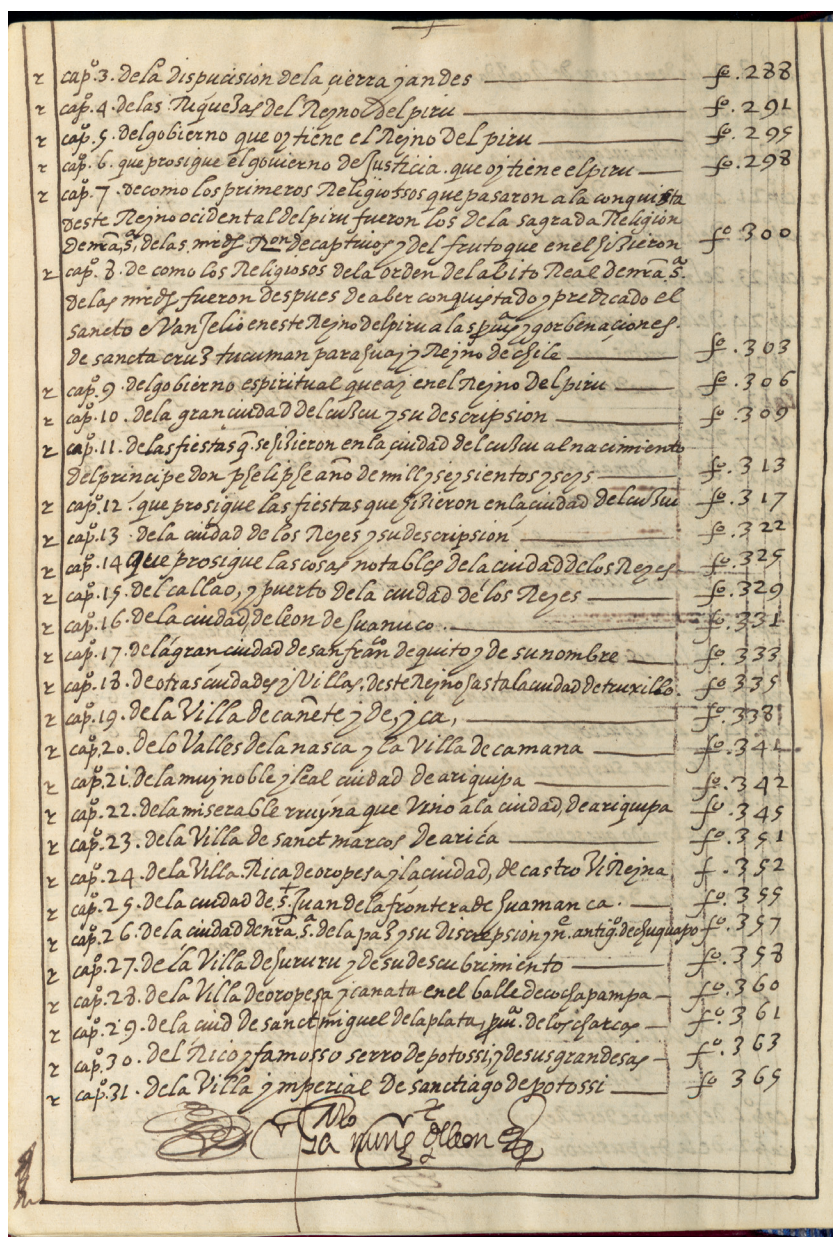 r capº.3. dela dispucision dela çierra y andes fº.288
r capº.4. delas Riquesas del Reyno del piru fº.291
r capº.5. del gobierno que oy tiene el Reyno Del piru fº.295
r capº.6. que prosigue el govierno de Justicia. que oy tiene el piru fº.298
r capº.7. de como los primeros Religiossos que pasaron a la conquista
deste Reyno ocidental del piru fueron los dela sagrada Religion
de nrã sª. delas mrds Ron de captivos y del fruto que en el hisieron fº 300
r capº.8. de como los Religiosos dela orden del abito Real de nrã sª.
delas mrds fueron despues de aber conquistado y predicado el
sancto eVanJelio en este Reyno del piru a las y gorbenaçiones.
de sancta crus tucuman paraguai y Reyno de chile fº.303
r capº.9. del gobierno espiritual que ai en el Reyno Del piru fº.306
r capº.10. dela gran ciudad del cusco y su descripsion fº.309
r capº.11. de las fiestas q̃ se hisieron en la çiudad del cuscu al nacimiento
del principe don phelipe año de mill y seysientos y seys fº.313
r capº.12. que prosigue las fiestas que hisieron en la ciudad del cuscu fº.317
r capº.13. de la cuidad de los Reyes y su descripsion fº.322
r capº.14 Que prosigue las cosas notables de la çiudad de los Reyes fº.325
r capº.15. del callao, y puerto de la ciudad de los Reyes fº.329
r capº.16. de la ciudad, de leon de huanuco. fº.331
r capº.17. de la gran ciudad de san franco de quito y de su nombre fº.333
r capº.18. de otras ciudades y Villas, deste Reyno hasta la ciudad de truxillo. fº.335
r capº.19. de la Villa de cañete y de, yca, fº.338
r capº.20. de lo Valles de la nasca y la Villa de camana fº.341
r capº.21. de la muy noble y leal ciudad de ariquipa fº.342
r capº.22. de la miserable rruyna que Vino a la ciudad, de ariquipa fº.345
r capº.23. de la Villa de sanct marcos De arica fº.351
r capº.24. de la Villa Rica de oropesa y la ciudad, de castro ViReyna f.352
r capº.25. de la ciudad de, s. Juan de la frontera de huamanca. fº.355
r capº.26. de la çiudad de nrã. sª. de la pas y su Discrepsion y nẽ. antigº. de chuquiapo fº.357
r capº.27. de la Villa de hururu y de su descubrimiento fº.358
r capº.28. de la Villa de oropesa y canata en el balle de cochapampa fº.360
r capº.29. de la ciud de sanct miguel de la plata, de los charcas fº.361
r capº.30. del Rico y famosso serro de potossi, y de sus grandesas fº.363
r capº.31. de la Villa ymperial De sanctiago de potossi fº 365